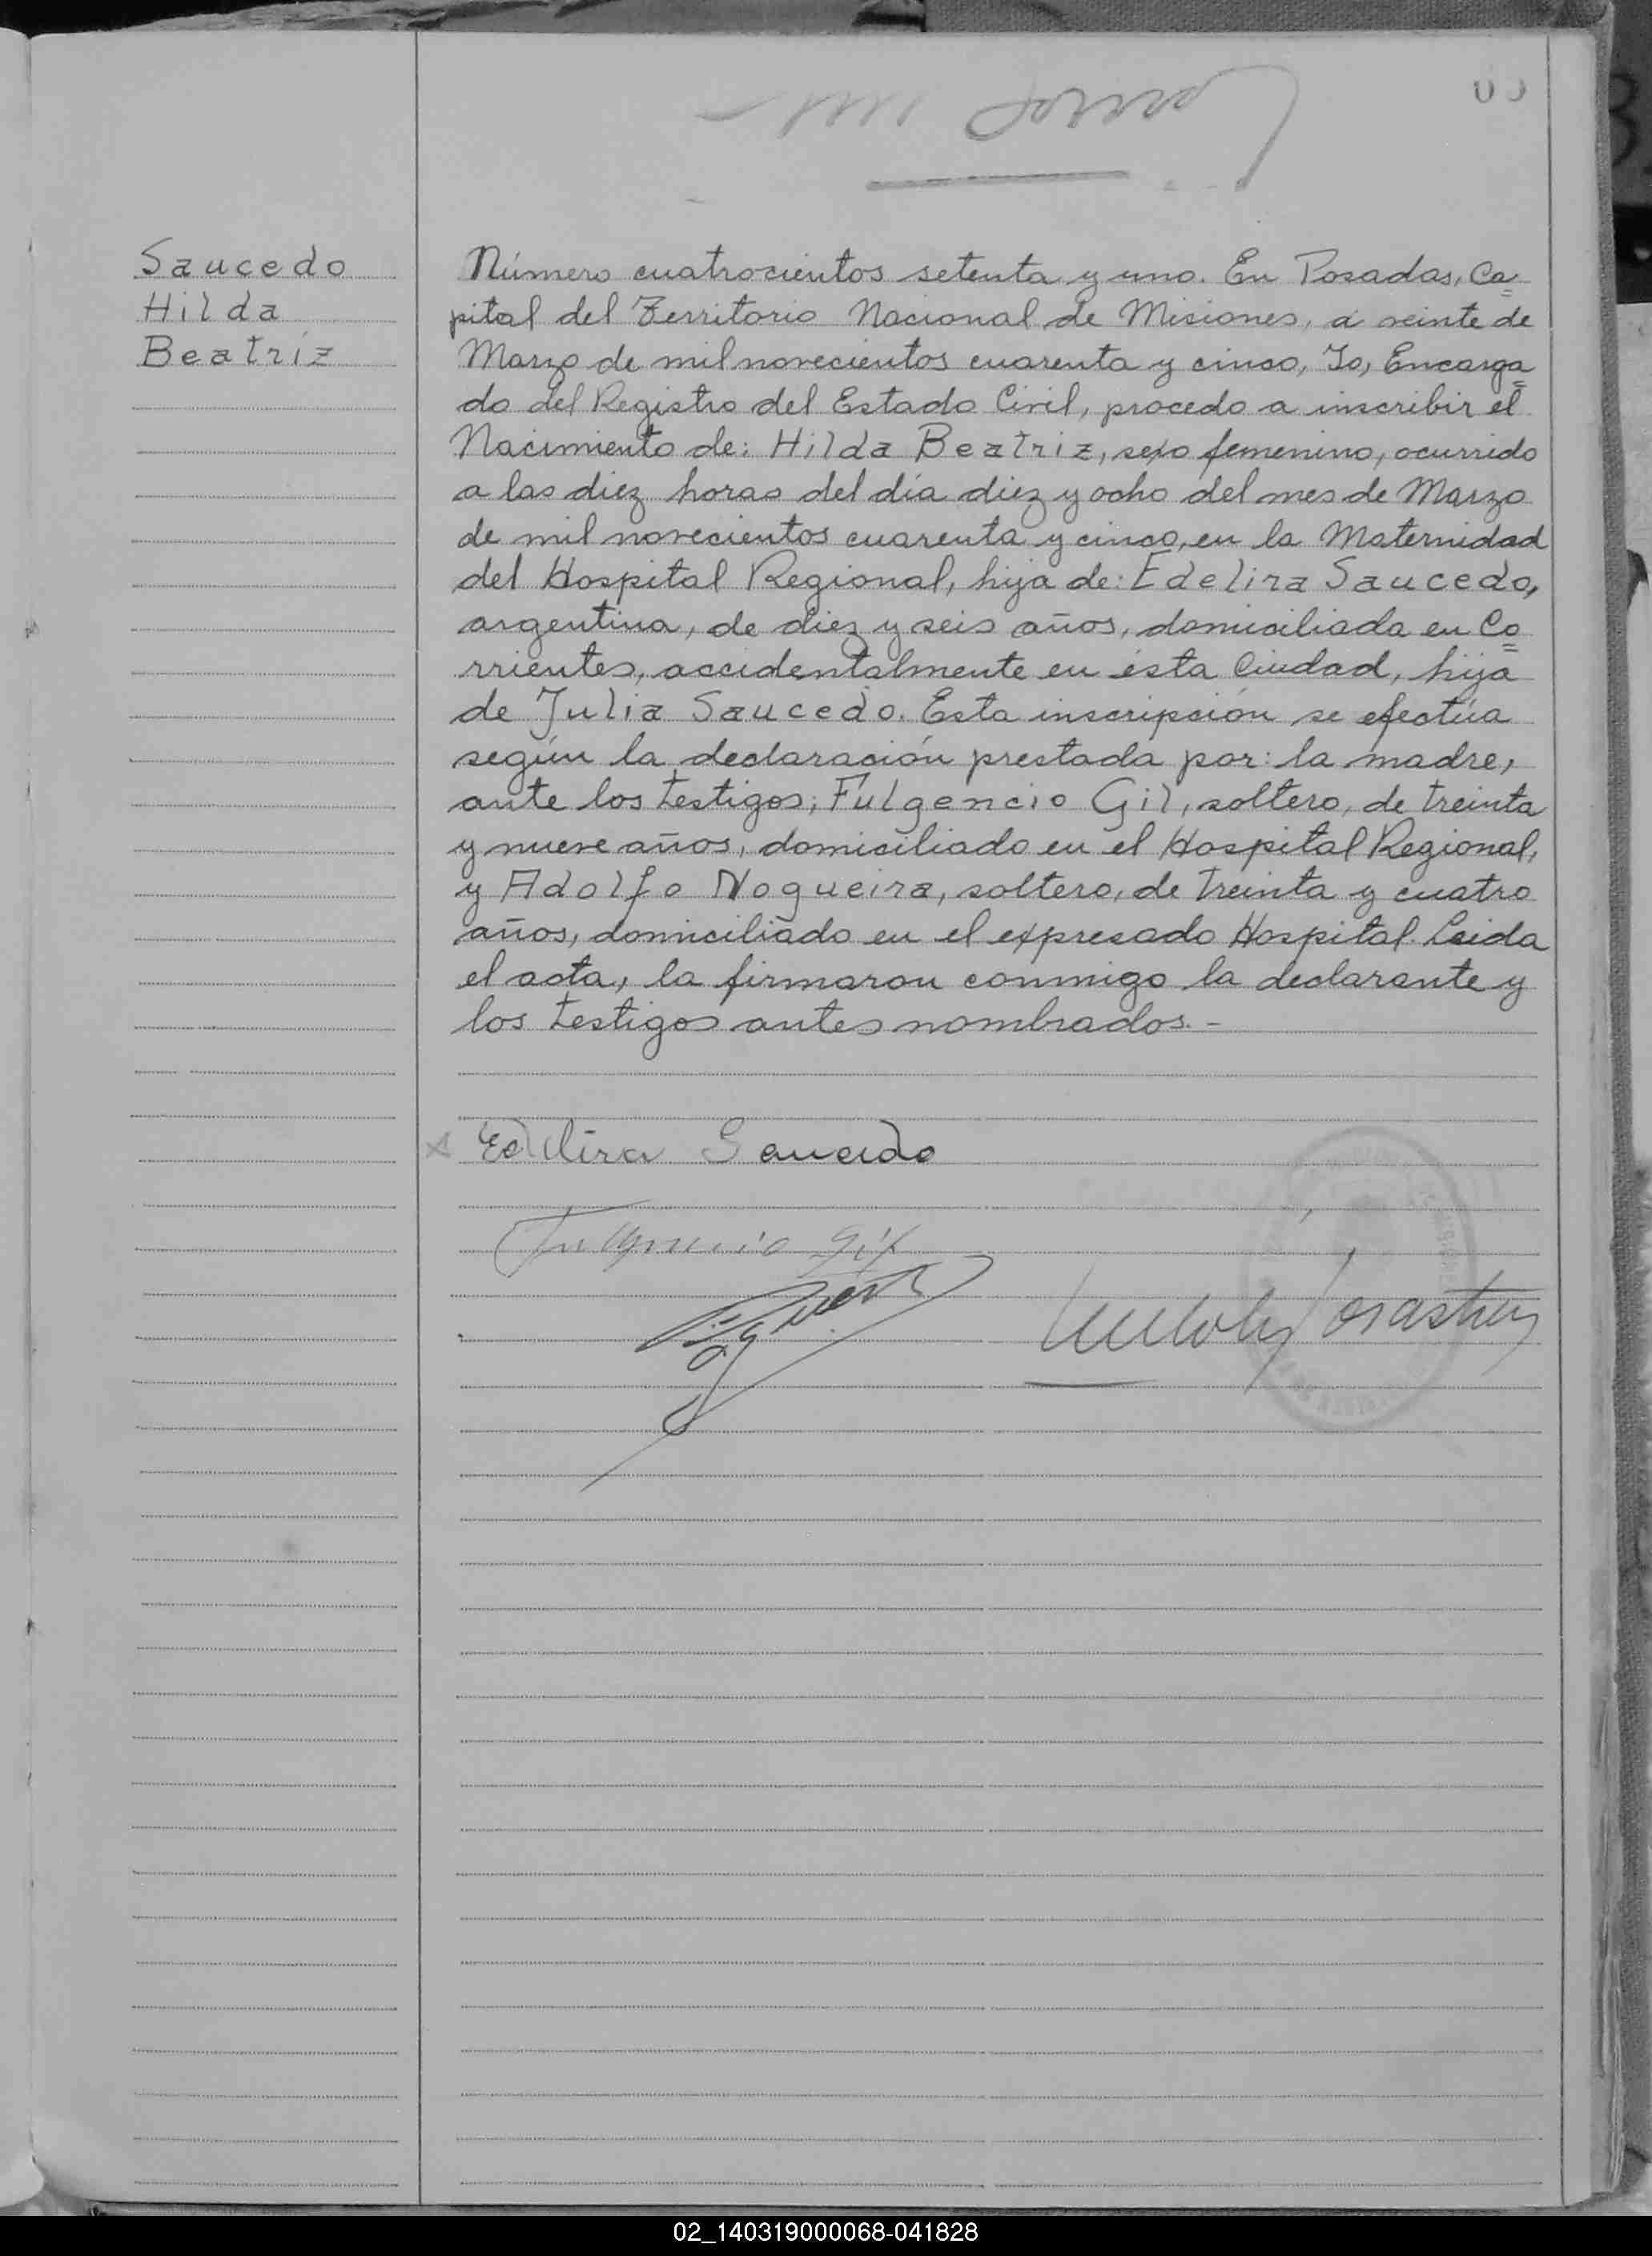 Saucedo
Hilda
Beatríz
Número cuatrocientos setenta y uno. En Posadas, Ca=
pital del Territorio Nacional de Misiones, a veinte de
Marzo de mil novecientos cuarenta y cinco, Yo, Encarga=
do del Registro del Estado Civil, procedo a inscribir el
Nacimiento de: Hilda Beatriz, sexo femenino, ocurrido
a las diez horas del día diez y ocho del mes de Marzo
de mil novecientos cuarenta y cinco, en la Maternidad
del Hospital Regional, hija de: Edelira Saucedo,
argentina, de diez y seis años, domiciliada en Co=
rrientes, accidentalmente en ésta Ciudad, hija
de Julia Saucedo. Esta inscripción se efectúa
según la declaración prestada por: la madre,
ante los testigos; Fulgencio Gil, soltero, de treinta
y nueve años, domiciliado en el Hospital Regional,
y Adolfo Nogueira, soltero, de treinta y cuatro
años, domiciliado en el expresado Hospital. Leida
el acta, la firmaron conmigo la declarante y
los testigos antes nombrados.-
Edelira Saucedo
Fulgencio Gil
02_140319000068-041828